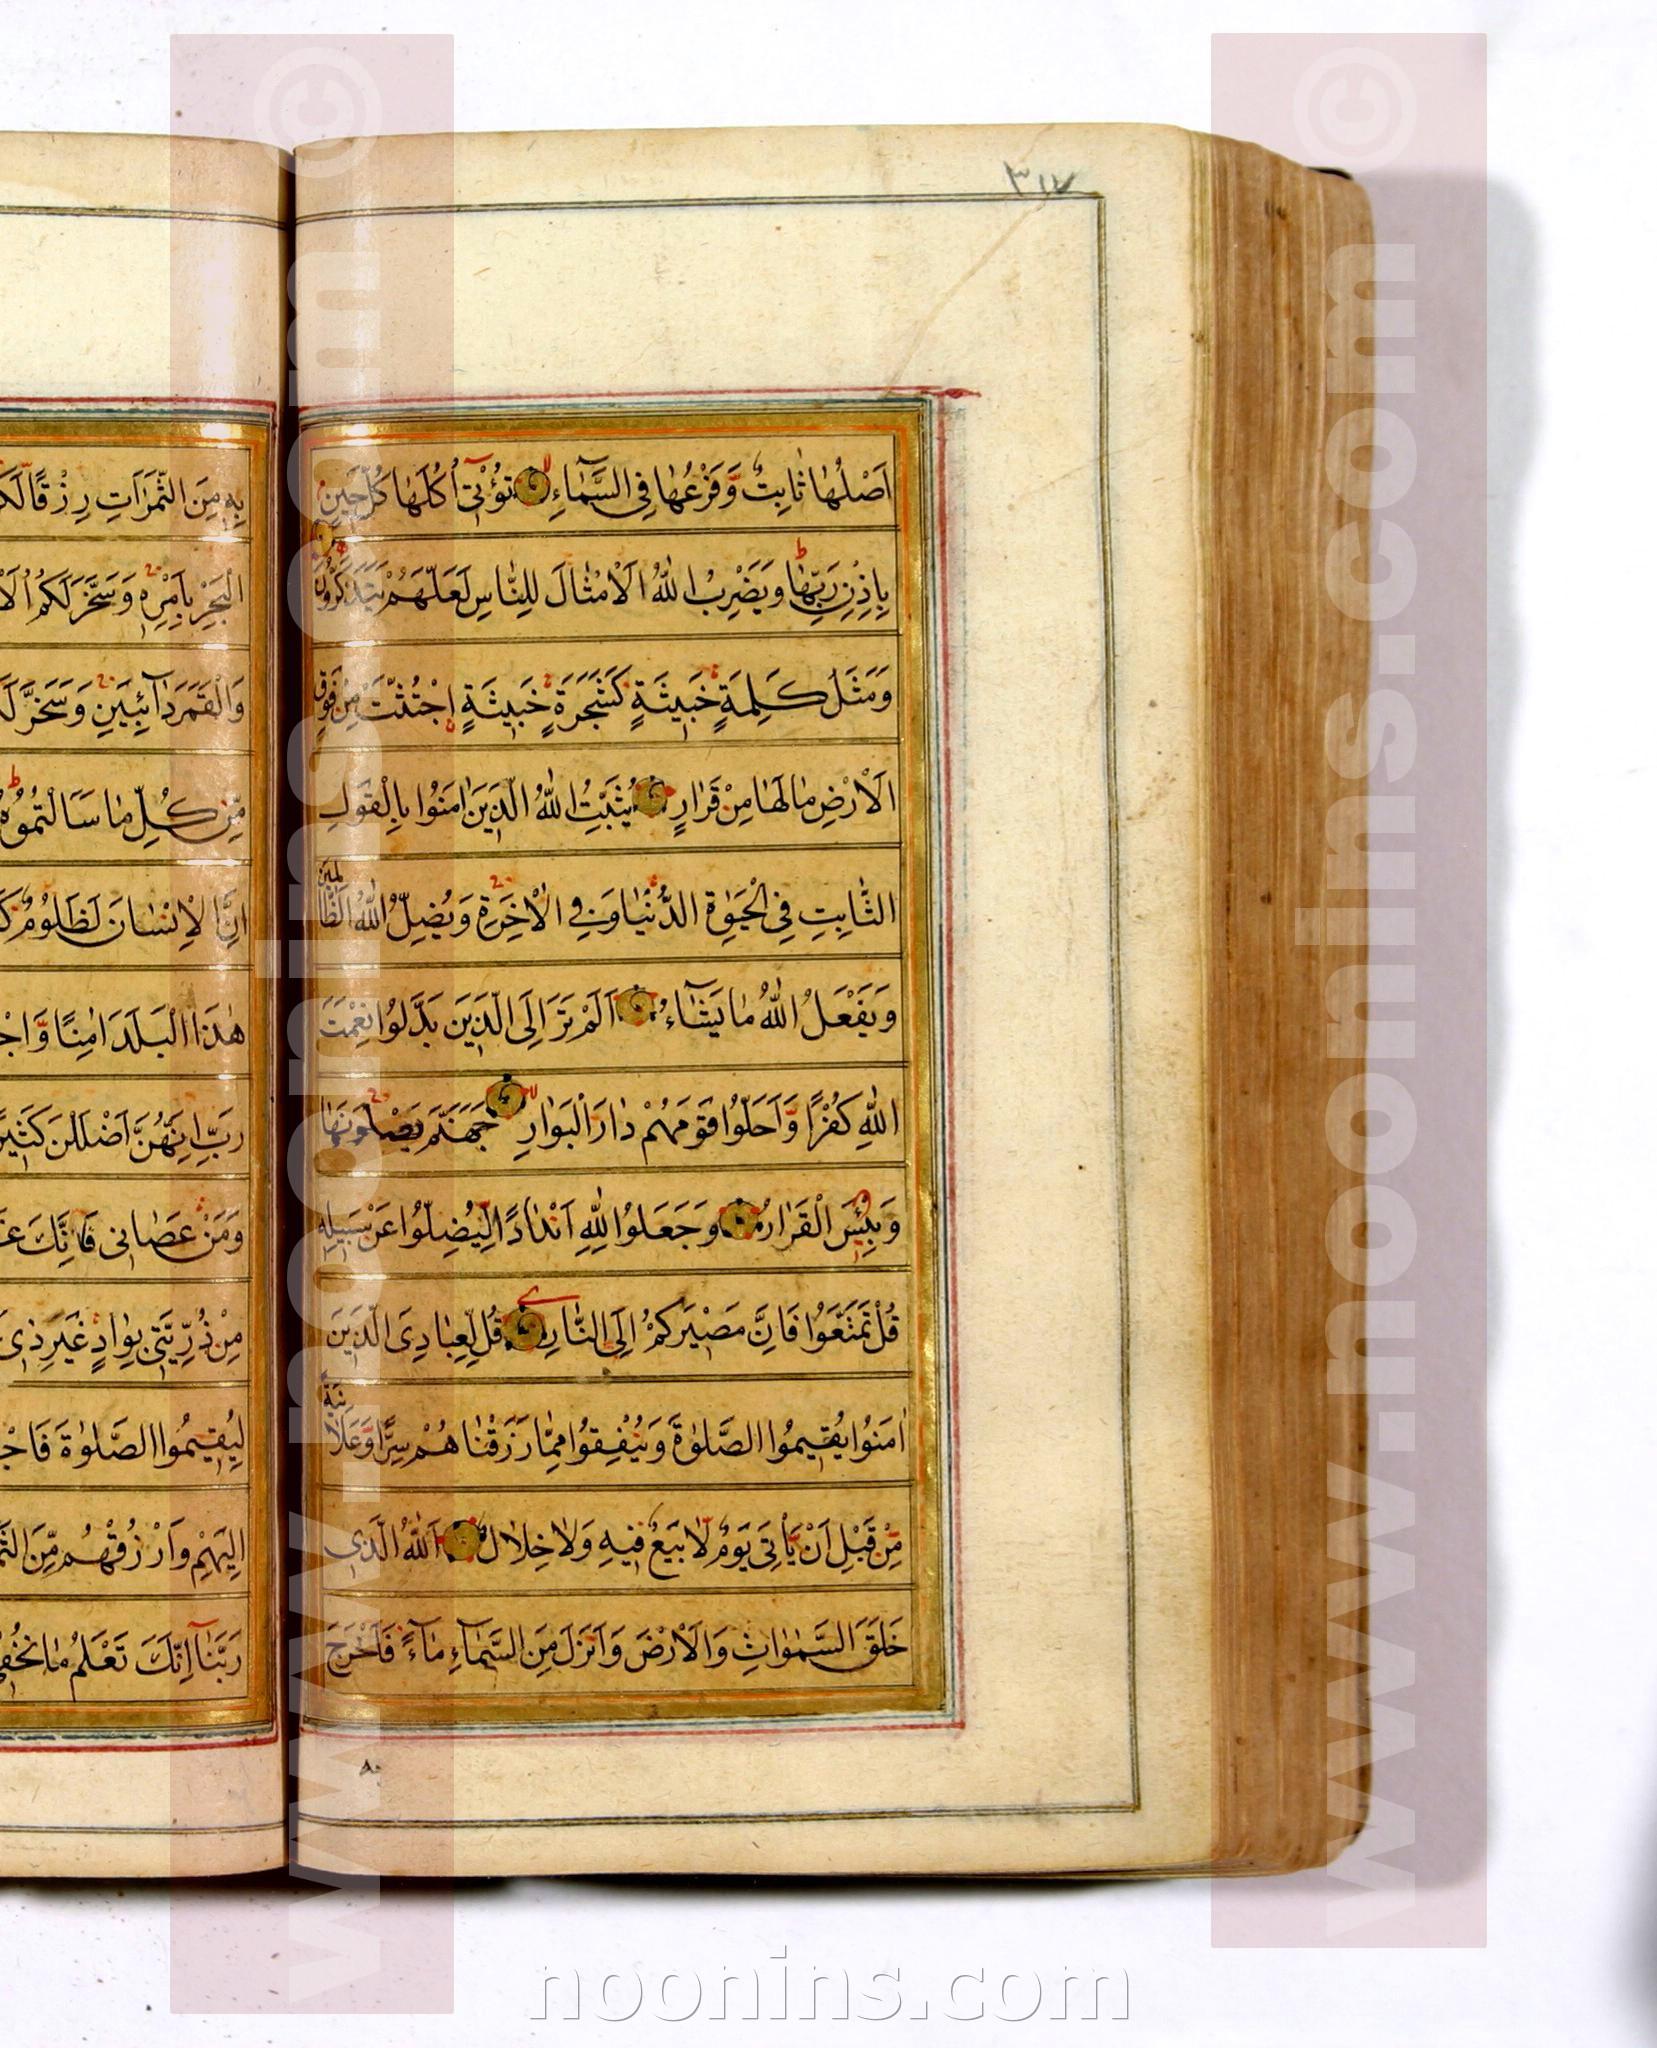 ٣١٧
اَصْلُهَا ثَابِتٌ وَّفَرْعُهَا فِی السَّمَآءِ تُؤْتِیٓ اُكُلَهَا كُلَّ حِینٍ
بِاِذْنِ رَبِّهَا ط وَیَضْرِبُ اللّٰهُ الْاَمْثَالَ لِلنَّاسِ لَعَلَّهُمْ یَتَذَكَّرُونَ
وَمَثَلُ كَلِمَةٍ خَبِیثَةٍ كَشَجَرَةٍ خَبِیثَةٍ اجْتُثَّتْ مِنْ فَوْقِ
الْاَرْضِ مَا لَهَا مِنْ قَرَارٍ یُثَبِّتُ اللّٰهُ الَّذِینَ اٰمَنُوا بِالْقَوْلِ
الثَّابِتِ فِی الْحَیٰوةِ الدُّنْیَا وَفِی الْاٰخِرَةِ وَیُضِلُّ اللّٰهُ الظَّالِمِینَ
وَیَفْعَلُ اللّٰهُ مَا یَشَآءُ اَلَمْ تَرَ اِلَی الَّذِینَ بَدَّلُوا نِعْمَتَ
اللّٰهِ كُفْرًا وَّاَحَلُّوا قَوْمَهُمْ دَارَ الْبَوَارِ جَهَنَّمَ یَصْلَوْنَهَا
وَبِئْسَ الْقَرَارُ وَجَعَلُوا لِلّٰهِ اَنْدَادًا لِّیُضِلُّوا عَنْ سَبِیلِهِ
قُلْ تَمَتَّعُوا فَاِنَّ مَصِیرَكُمْ اِلَی النَّارِ قُلْ لِعِبَادِیَ الَّذِینَ
اٰمَنُوا یُقِیمُوا الصَّلٰوةَ وَیُنْفِقُوا مِمَّا رَزَقْنَاهُمْ سِرًّا وَّعَلَانِیَةً
مِّنْ قَبْلِ اَنْ یَّاْتِیَ یَوْمٌ لَّا بَیْعٌ فِیهِ وَلَا خِلَالٌ اَللّٰهُ الَّذِی
خَلَقَ السَّمٰوَاتِ وَالْاَرْضَ وَاَنْزَلَ مِنَ السَّمَآءِ مَآءً فَاَخْرَجَ
بِهِ مِنَ الثَّمَرَاتِ رِزْقًا
الْبَحْرِ بِاَمْرِهِ وَسَخَّرَ لَكُمُ
وَالْقَمَرَ دَآئِبَیْنِ وَسَخَّرَ
مِّنْ كُلِّ مَا سَاَلْتُمُوهُ
اِنَّ الْاِنْسَانَ لَظَلُومٌ
هٰذَا الْبَلَدَ اٰمِنًا
رَبِّ اِنَّهُنَّ اَضْلَلْنَ
وَمَنْ عَصَانِی فَاِنَّكَ
مِنْ ذُرِّیَّتِی بِوَادٍ غَیْرِ ذِی
لِیُقِیمُوا الصَّلٰوةَ
اِلَیْهِمْ وَارْزُقْهُمْ مِّنَ
رَبَّنَآ اِنَّكَ تَعْلَمُ مَا نُخْفِی
www.noonins.com ©
www.noonins.com ©
noonins.com